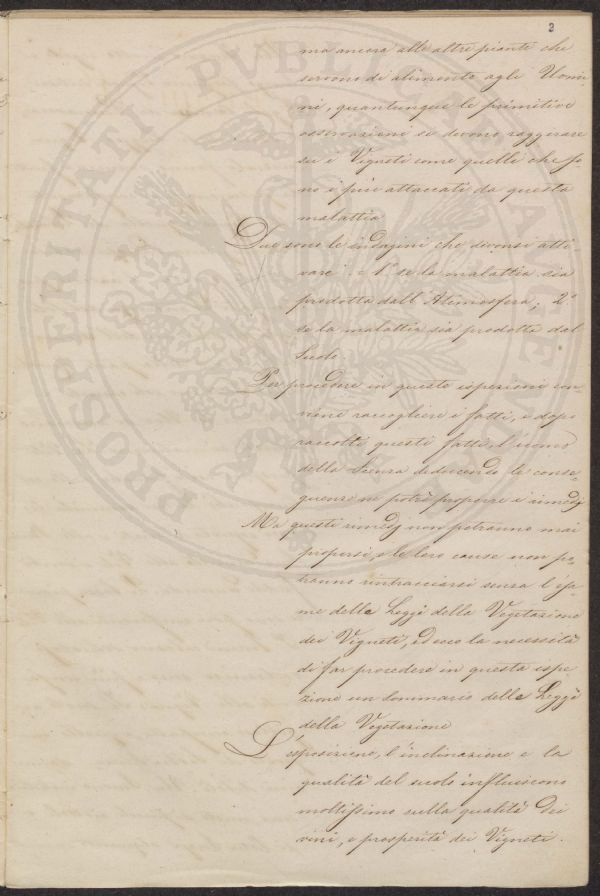 3
ma ancora alle altre piante che
servono di alimento agli Uomi-
ni, quantunque le primitive
osservazioni si devono raggirare
su i Vigneti come quelli che so-
no i più attaccati da questa
malattia
Due sono le indagini che devonsi atti-
vare: 1° se la malattia sia
prodotta dall'Atmosfera; 2°
se la malattia sia prodotta dal
Suolo.
Per procedere in queste ispezioni con-
viene raccogliere i fatti, e dopo
raccolti questi fatti, l'uomo
della Scienza deducendo le conse-
guenze ne potrà proporre i rimedj
Ma questi rimedj non potranno mai
proporsi, e le loro cause non po-
tranno rintracciarsi senza l'esa-
me delle Leggi della Vegetazione
dei Vigneti, ed ecco la necessità
di far procedere in questa ispe
zione un Sommario delle Leggi
della Vegetazione
L'esposizione, l'inclinazione e la
qualità del suolo influiscono
moltissimo sulla qualità dei
vini, e prosperità dei Vigneti.
PROSPERITATI PVBLICAE AVGENDAE